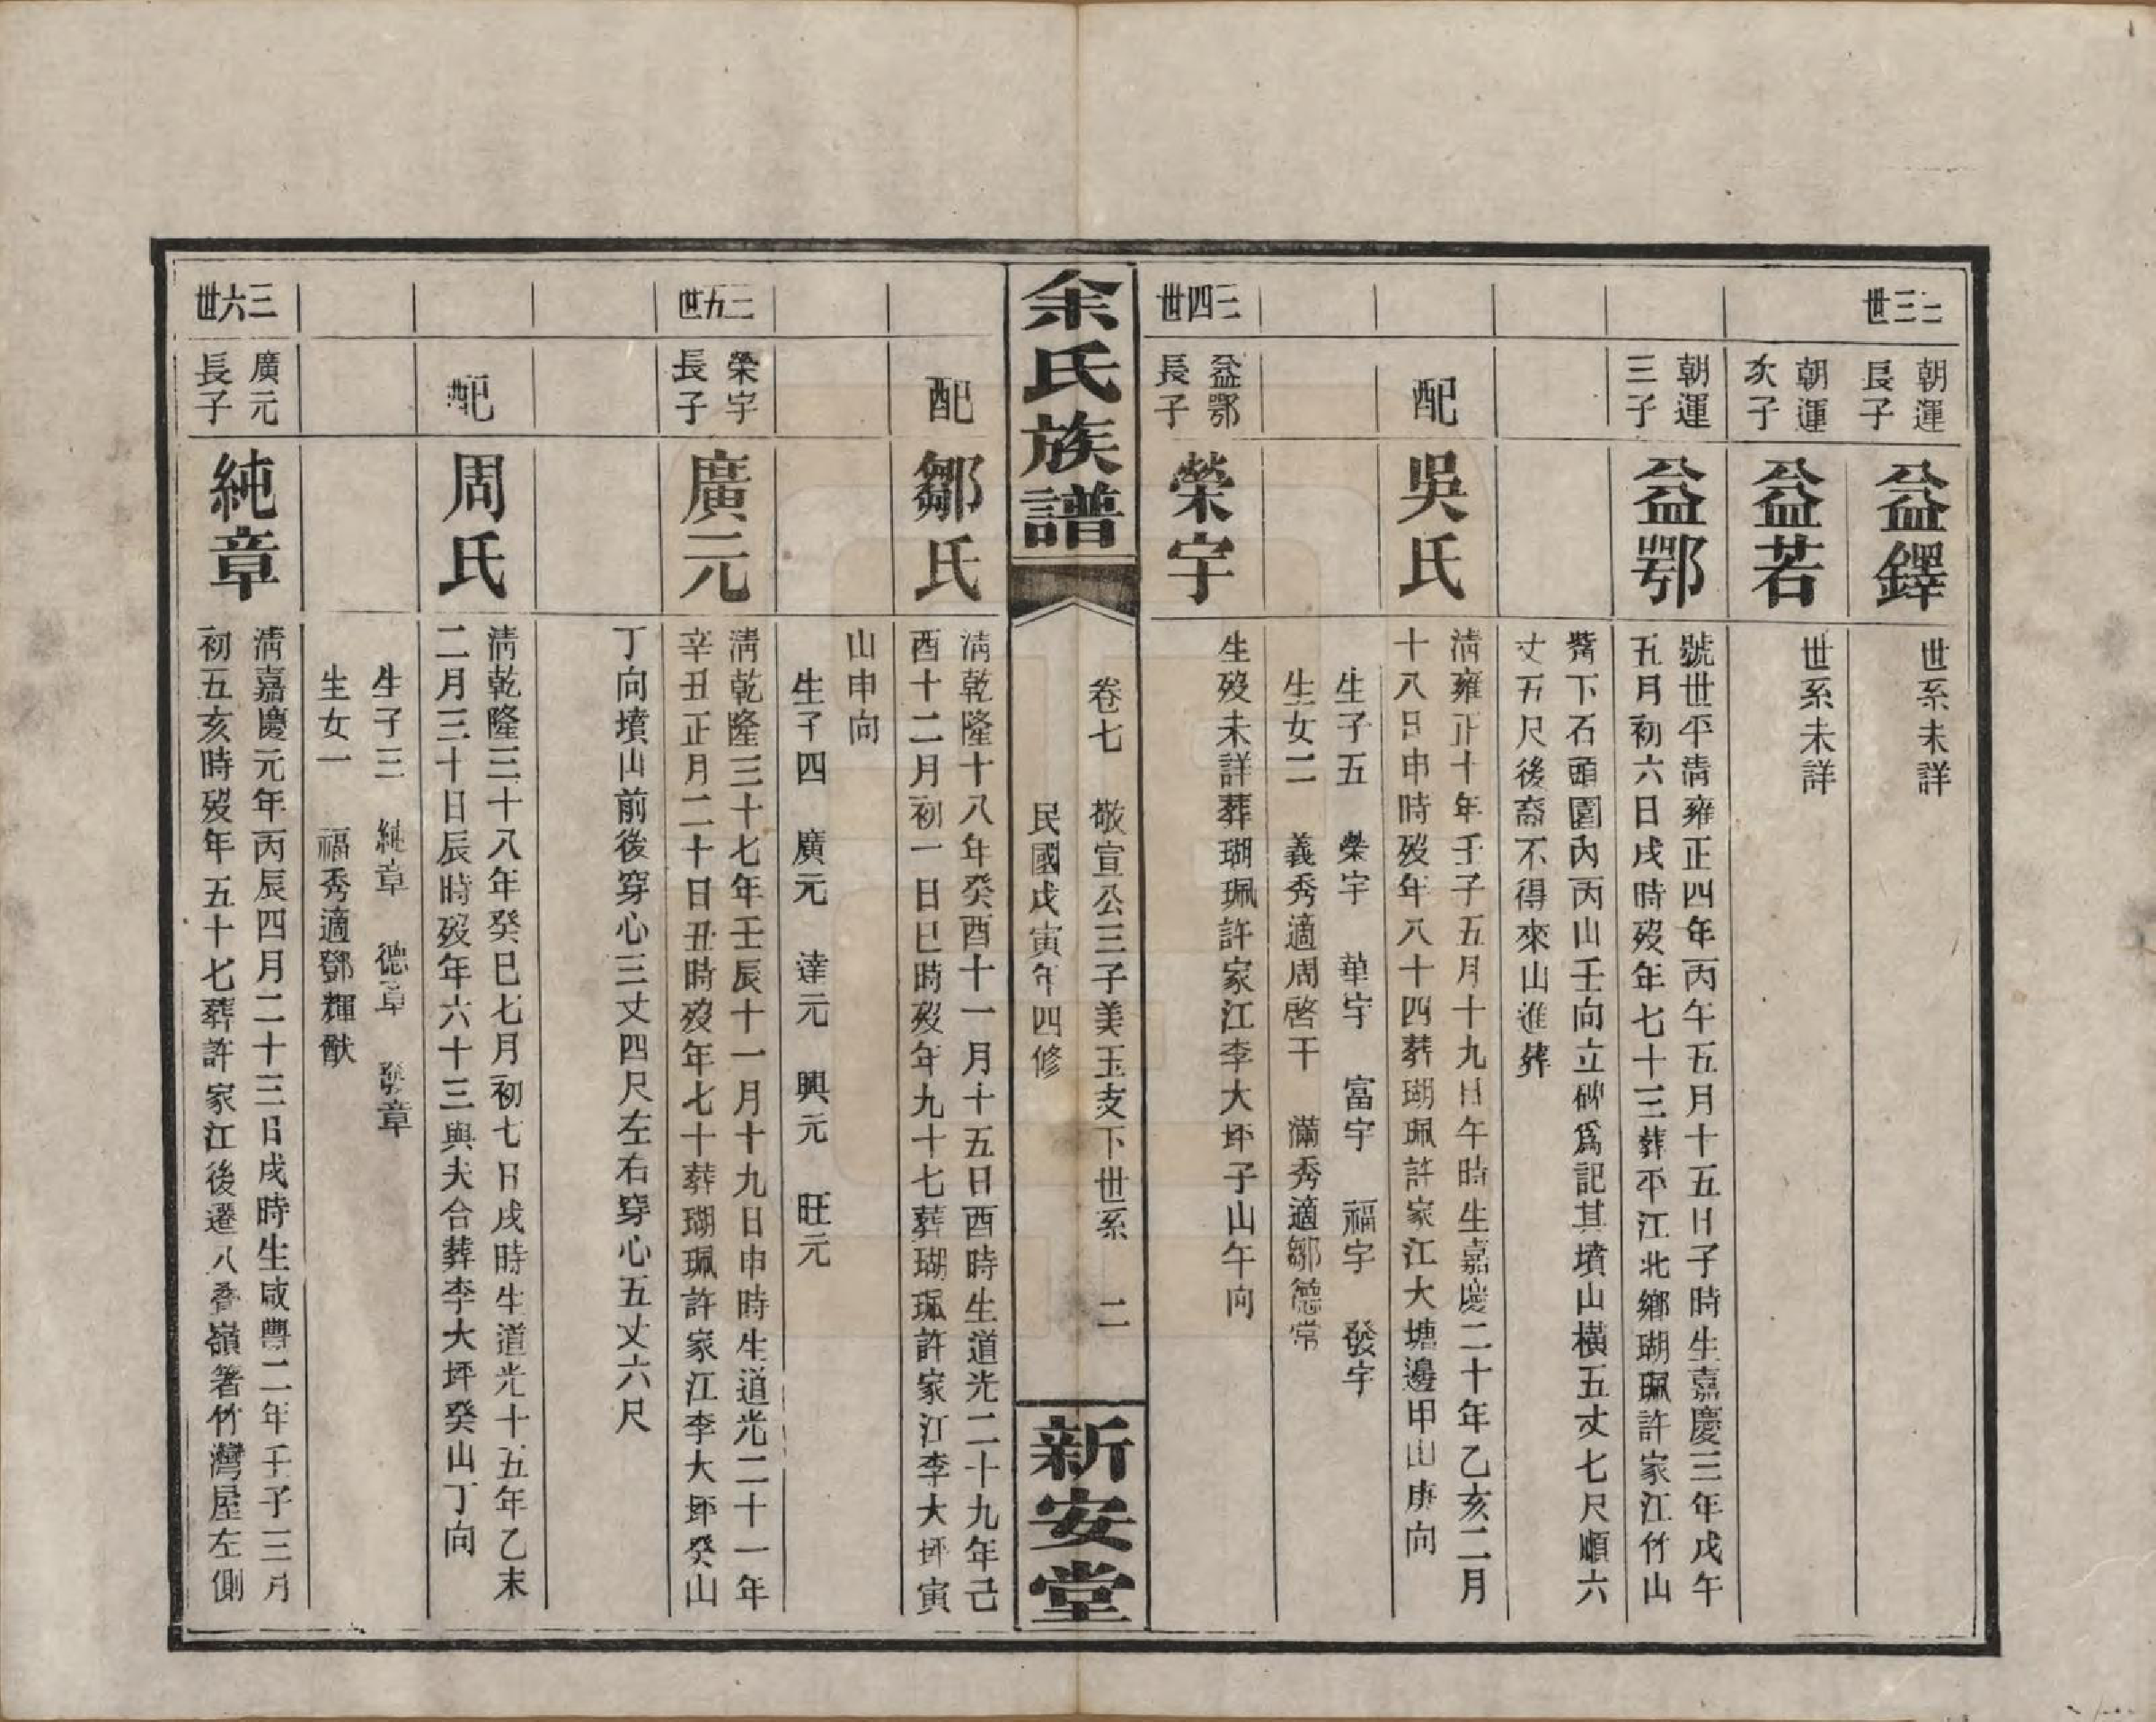 三三世
朝運長子
益鐸
世系未詳
朝運次子
益若
世系未詳
朝運三子
益鄂
號世平淸雍正四年丙午五月十五日子時生嘉慶三年戊午
五月初六日戌時歿年七十三葬平江北鄉瑚珮許家江竹山
觜下石頭園內丙山壬向立碑爲記其墳山橫五丈七尺順六
丈五尺後裔不得來山進葬
配
吳氏
淸雍正十年壬子五月十九日午時生嘉慶二十年乙亥二月
十八日申時歿年八十四葬瑚珮許家江大塘邊甲山庚向
生子五 榮宇 華宇 富宇 福宇 發宇
生女二 義秀適周啓干 滿秀適鄒德常
三四世
益鄂長子
榮宇
生歿未詳葬瑚珮許家江李大坪子山午向
余氏族譜
卷七 敬宣公三子美玉支下世系 二
民國戊寅年四修
新安堂
配
鄒氏
淸乾隆十八年癸酉十一月十五日酉時生道光二十九年己
酉十二月初一日巳時歿年九十七葬瑚珮許家江李大坪寅
山申向
生子四 廣元 達元 興元 旺元
三五世
榮宇長子
廣元
淸乾隆三十七年壬辰十一月十九日申時生道光二十一年
辛丑正月二十日丑時歿年七十葬瑚珮許家江李大坪癸山
丁向墳山前後穿心三丈四尺左右穿心五丈六尺
配
周氏
淸乾隆三十八年癸巳七月初七日戌時生道光十五年乙未
二月三十日辰時歿年六十三與夫合葬李大坪癸山丁向
生子三 純章 德章 發章
生女一 福秀適鄧輝猷
三六世
廣元長子
純章
淸嘉慶元年丙辰四月二十三日戌時生咸豐二年壬子三月
初五亥時歿年五十七葬許家江後遷八疊嶺箬竹灣屋左側